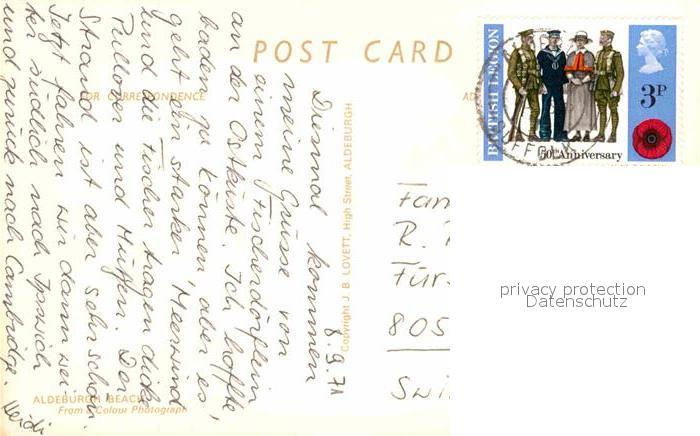 POST CARD
FOR CORRESPONDENCE
AD
BRITISH LEGION
3P
50th Anniversary
8.9.71
Diesmal kommen
meine Grüsse von
einem Fischerdörflein
an der Ostküste. Ich hoffte,
baden zu können aber es
geht ein starker Meerwind
und die Fischer tragen dicke
Pullover und Mützen. Der
Strand ist aber sehr schön.
Jetzt fahren wir dann wei-
ter südlich nach Ipswich
und zurück nach Cambridge. Heidi
Copyright J. B. LOVETT, High Street, ALDEBURGH
Fam
R.
Für
805
Swi
privacy protection
Datenschutz
ALDEBURGH BEACH
From a Colour Photograph